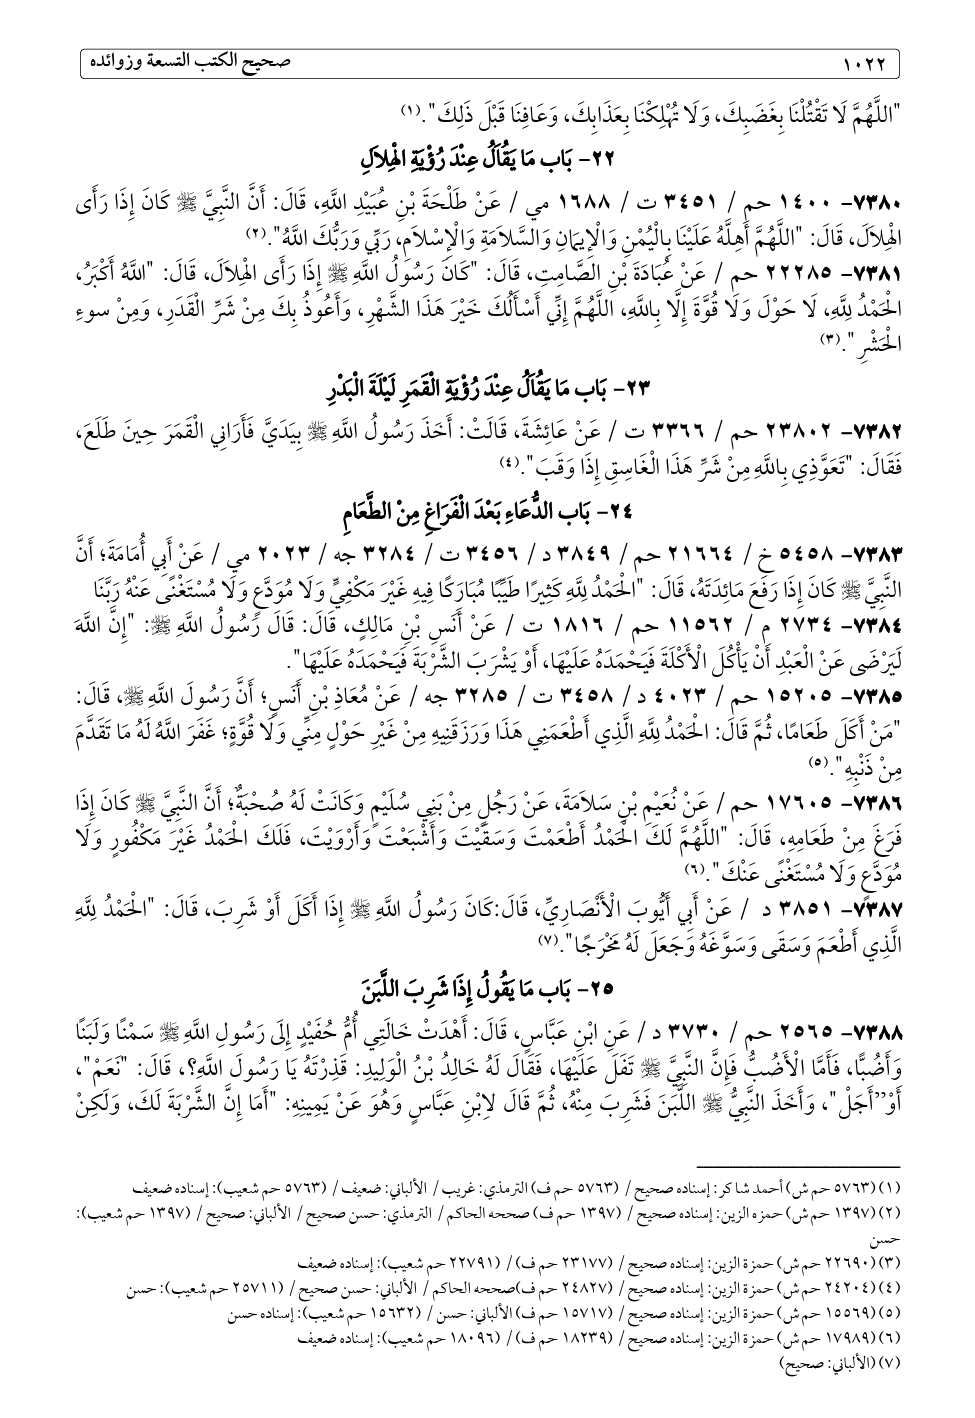 ١٠٢٢ صحيح الكتب التسعة وزوائده
"اللَّهُمَّ لَا تَقْتُلْنَا بِغَضَبِكَ، وَلَا تُهْلِكْنَا بِعَذَابِكَ، وَعَافِنَا قَبْلَ ذَلِكَ".(١)
٢٢- بَاب مَا يَقُالُ عِنْدَ رُؤْيَةِ الْهِلَالِ
٧٣٨٠- ١٤٠٠ حم / ٣٤٥١ ت / ١٦٨٨ مي / عَنْ طَلْحَةَ بْنِ عُبَيْدِ اللَّهِ، قَالَ: أَنَّ النَّبِيَّ ﷺ كَانَ إِذَا رَأَى
الْهِلَالَ، قَالَ: "اللَّهُمَّ أَهِلَّهُ عَلَيْنَا بِالْيُمْنِ وَالْإِيمَانِ وَالسَّلَامَةِ وَالْإِسْلَامِ، رَبِّي وَرَبُّكَ اللَّهُ".(٢)
٧٣٨١- ٢٢٢٨٥ حم / عَنْ عُبَادَةَ بْنِ الصَّامِتِ، قَالَ: "كَانَ رَسُولُ اللَّهِ ﷺ إِذَا رَأَى الْهِلَالَ، قَالَ: "اللَّهُ أَكْبَرُ،
الْحَمْدُ لِلَّهِ، لَا حَوْلَ وَلَا قُوَّةَ إِلَّا بِاللَّهِ، اللَّهُمَّ إِنِّي أَسْأَلُكَ خَيْرَ هَذَا الشَّهْرِ، وَأَعُوذُ بِكَ مِنْ شَرِّ الْقَدَرِ، وَمِنْ سوءِ
الْحَشْرِ".(٣)
٢٣- بَاب مَا يَقُالُ عِنْدَ رُؤْيَةِ الْقَمَرِ لَيْلَةَ الْبَدْرِ
٧٣٨٢- ٢٣٨٠٢ حم / ٣٣٦٦ ت / عَنْ عَائِشَةَ، قَالَتْ: أَخَذَ رَسُولُ اللَّهِ ﷺ بِيَدَيَّ فَأَرَانِي الْقَمَرَ حِينَ طَلَعَ،
فَقَالَ: "تَعَوَّذِي بِاللَّهِ مِنْ شَرِّ هَذَا الْغَاسِقِ إِذَا وَقَبَ".(٤)
٢٤- بَاب الدُّعَاءِ بَعْدَ الْفَرَاغِ مِنْ الطَّعَامِ
٧٣٨٣- ٥٤٥٨ خ / ٢١٦٦٤ حم / ٣٨٤٩ د / ٣٤٥٦ ت / ٣٢٨٤ جه / ٢٠٢٣ مي / عَنْ أَبِي أُمَامَةَ؛ أَنَّ
النَّبِيَّ ﷺ كَانَ إِذَا رَفَعَ مَائِدَتَهُ، قَالَ: "الْحَمْدُ لِلَّهِ كَثِيرًا طَيِّبًا مُبَارَكًا فِيهِ غَيْرَ مَكْفِيٍّ وَلَا مُوَدَّعٍ وَلَا مُسْتَغْنًى عَنْهُ رَبَّنَا
٧٣٨٤- ٢٧٣٤ م / ١١٥٦٢ حم / ١٨١٦ ت / عَنْ أَنَسِ بْنِ مَالِكٍ، قَالَ: قَالَ رَسُولُ اللَّهِ ﷺ: "إِنَّ اللَّهَ
لَيَرْضَى عَنْ الْعَبْدِ أَنْ يَأْكُلَ الْأَكْلَةَ فَيَحْمَدَهُ عَلَيْهَا، أَوْ يَشْرَبَ الشَّرْبَةَ فَيَحْمَدَهُ عَلَيْهَا".
٧٣٨٥- ١٥٢٠٥ حم / ٤٠٢٣ د / ٣٤٥٨ ت / ٣٢٨٥ جه / عَنْ مُعَاذِ بْنِ أَنَسٍ؛ أَنَّ رَسُولَ اللَّهِ ﷺ، قَالَ:
"مَنْ أَكَلَ طَعَامًا، ثُمَّ قَالَ: الْحَمْدُ لِلَّهِ الَّذِي أَطْعَمَنِي هَذَا وَرَزَقَنِيهِ مِنْ غَيْرِ حَوْلٍ مِنِّي وَلَا قُوَّةٍ؛ غَفَرَ اللَّهُ لَهُ مَا تَقَدَّمَ
مِنْ ذَنْبِهِ".(٥)
٧٣٨٦- ١٧٦٠٥ حم / عَنْ نُعَيْمِ بْنِ سَلَامَةَ، عَنْ رَجُلٍ مِنْ بَنِي سُلَيْمٍ وَكَانَتْ لَهُ صُحْبَةٌ؛ أَنَّ النَّبِيَّ ﷺ كَانَ إِذَا
فَرَغَ مِنْ طَعَامِهِ، قَالَ: "اللَّهُمَّ لَكَ الْحَمْدُ أَطْعَمْتَ وَسَقَيْتَ وَأَشْبَعْتَ وَأَرْوَيْتَ، فَلَكَ الْحَمْدُ غَيْرَ مَكْفُورٍ وَلَا
مُوَدَّعٍ وَلَا مُسْتَغْنًى عَنْكَ".(٦)
٧٣٨٧- ٣٨٥١ د / عَنْ أَبِي أَيُّوبَ الْأَنْصَارِيِّ، قَالَ:كَانَ رَسُولُ اللَّهِ ﷺ إِذَا أَكَلَ أَوْ شَرِبَ، قَالَ: "الْحَمْدُ لِلَّهِ
الَّذِي أَطْعَمَ وَسَقَى وَسَوَّغَهُ وَجَعَلَ لَهُ مَخْرَجًا".(٧)
٢٥- بَاب مَا يَقُولُ إِذَا شَرِبَ اللَّبَنَ
٧٣٨٨- ٢٥٦٥ حم / ٣٧٣٠ د / عَنِ ابْنِ عَبَّاسٍ، قَالَ: أَهْدَتْ خَالَتِي أُمُّ حُفَيْدٍ إِلَى رَسُولِ اللَّهِ ﷺ سَمْنًا وَلَبَنًا
وَأَضُبًّا، فَأَمَّا الْأَضُبُّ فَإِنَّ النَّبِيَّ ﷺ تَفَلَ عَلَيْهَا، فَقَالَ لَهُ خَالِدُ بْنُ الْوَلِيدِ: قَذِرْتَهُ يَا رَسُولَ اللَّهِ؟، قَالَ: "نَعَمْ"،
أَوْ"أَجَلْ"، وَأَخَذَ النَّبِيُّ ﷺ اللَّبَنَ فَشَرِبَ مِنْهُ، ثُمَّ قَالَ لِابْنِ عَبَّاسٍ وَهُوَ عَنْ يَمِينِهِ: "أَمَا إِنَّ الشَّرْبَةَ لَكَ، وَلَكِنْ
(١) (٥٧٦٣ حم ش) أحمد شاكر: إسناده صحيح / (٥٧٦٣ حم ف) الترمذي: غريب / الألباني: ضعيف / (٥٧٦٣ حم شعيب): إسناده ضعيف
(٢) (١٣٩٧ حم ش) حمزه الزين: إسناده صحيح / (١٣٩٧ حم ف) صححه الحاكم / الترمذي: حسن صحيح / الألباني: صحيح / (١٣٩٧ حم شعيب):
حسن
(٣) (٢٢٦٩٠ حم ش) حمزة الزين: إسناده صحيح / (٢٣١٧٧ حم ف) / (٢٢٧٩١ حم شعيب): إسناده ضعيف
(٤) (٢٤٢٠٤ حم ش) حمزة الزين: إسناده صحيح / (٢٤٨٢٧ حم ف)صححه الحاكم / الألباني: حسن صحيح / (٢٥٧١١ حم شعيب): حسن
(٥) (١٥٥٦٩ حم ش) حمزة الزين: إسناده صحيح / (١٥٧١٧ حم ف) الألباني: حسن / (١٥٦٣٢ حم شعيب): إسناده حسن
(٦) (١٧٩٨٩ حم ش) حمزة الزين: إسناده صحيح / (١٨٢٣٩ حم ف) / (١٨٠٩٦ حم شعيب): إسناده ضعيف
(٧) (الألباني: صحيح)